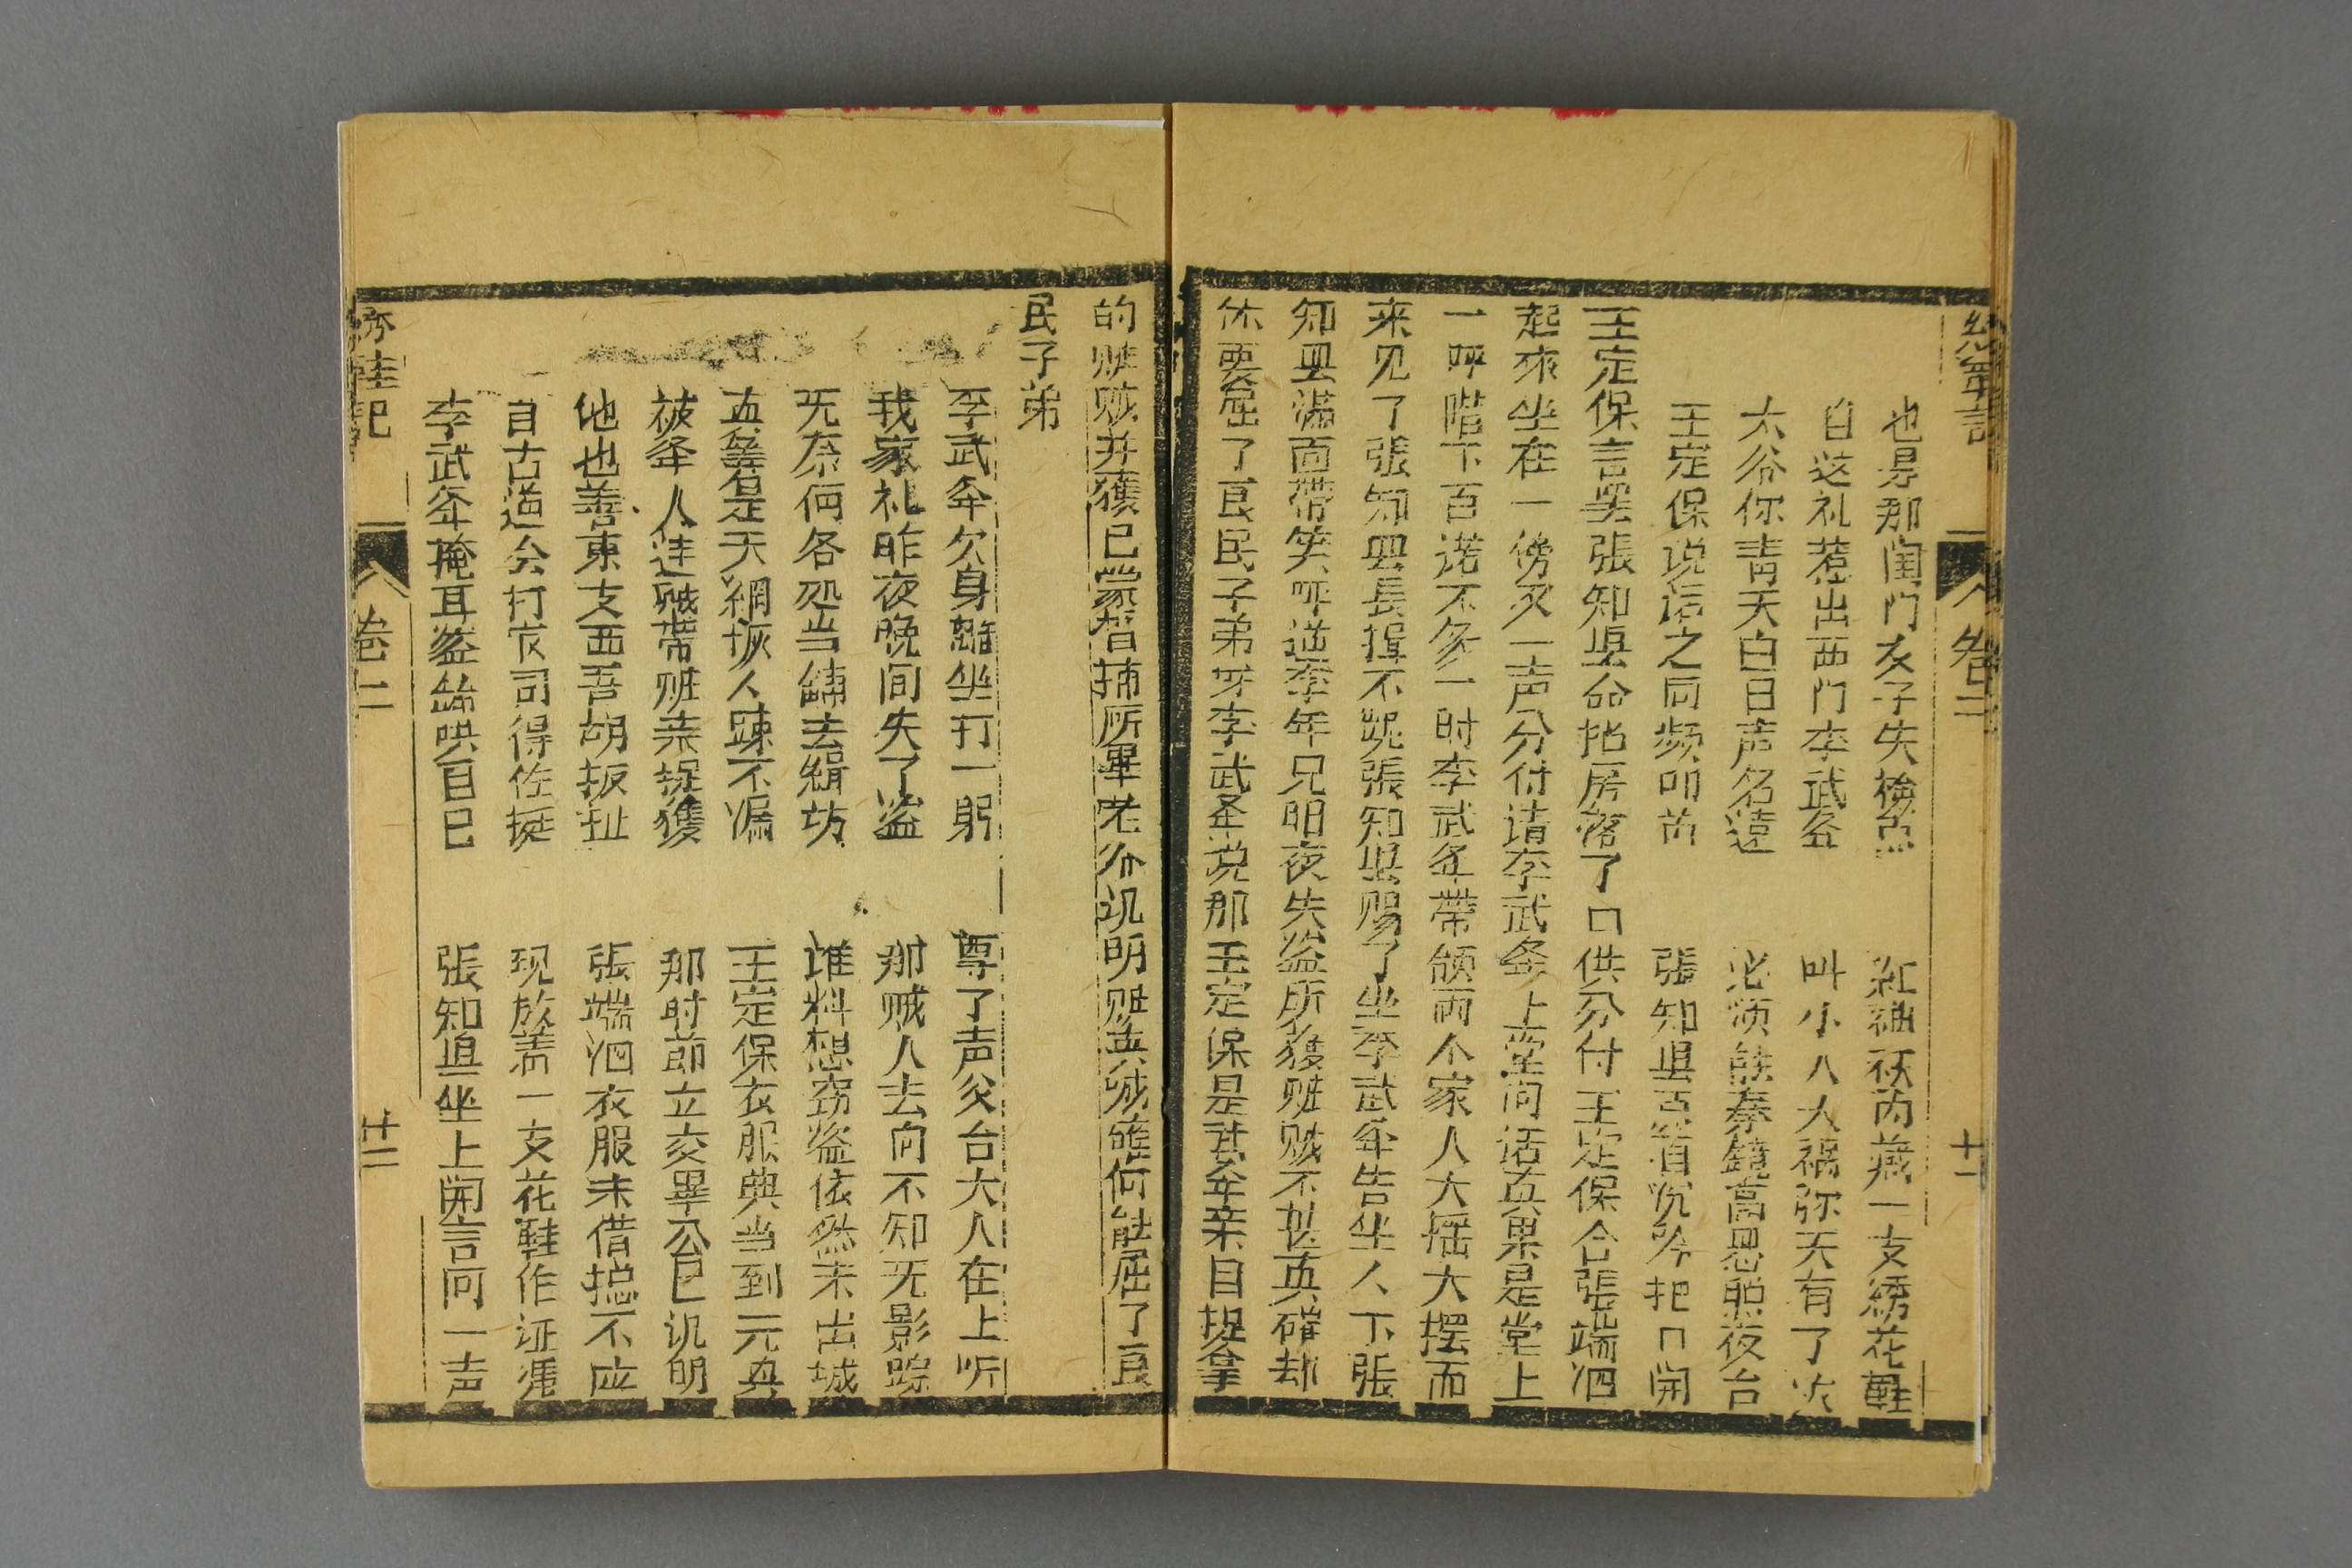 也是那闺门女子失檢点　紅袖袄内藏一支綉花鞋
自这礼惹出西门李武夆　叫小人大禍弥天有了次
太谷你青天白日声名遠　必須能秦鏡高悬照夜台
王定保说话之间频叩首　張知县舌沉吟把口開
王定保言罢張知县命招房落了口供分付王定保合張端泗
起来坐在一傍又一声分付请李武夆上堂问话真果是堂上
一呼階下百诺不多一时李武夆带領兩个家人大摇大摆而
来见了張知县長揖不跪張知县赐了坐李武夆告坐人下張
知县满面带笑呼道李年兄昨夜失盗所獲赃贼不甚真確却
休要屈了良民子弟呀李武夆说那王定保是某夆亲目捉拿
的赃贼并獲已蒙督捕所畢老公讯明赃真贼確何能屈了良
民子弟
李武夆欠身離坐打一躬　尊了声父台大人在上听
我家礼昨夜晚间失了盗　那贼人去向不知无影踪
无奈何各处当舖去緝访　谁料想窃盗依然未出城
真算是天網恢人踈不漏　王定保衣服典当到元真
被夆人連贼带赃亲捉獲　那时節立交畢公已讯明
他也善東支西吾胡扳扯　張端泗衣服未借揔不应
自古道公打官司得佐挺　现放着一支花鞋作证凴
李武夆掩耳盗鈴哄自已　張知县坐上開言问一声
綉鞋記　卷二　廿二